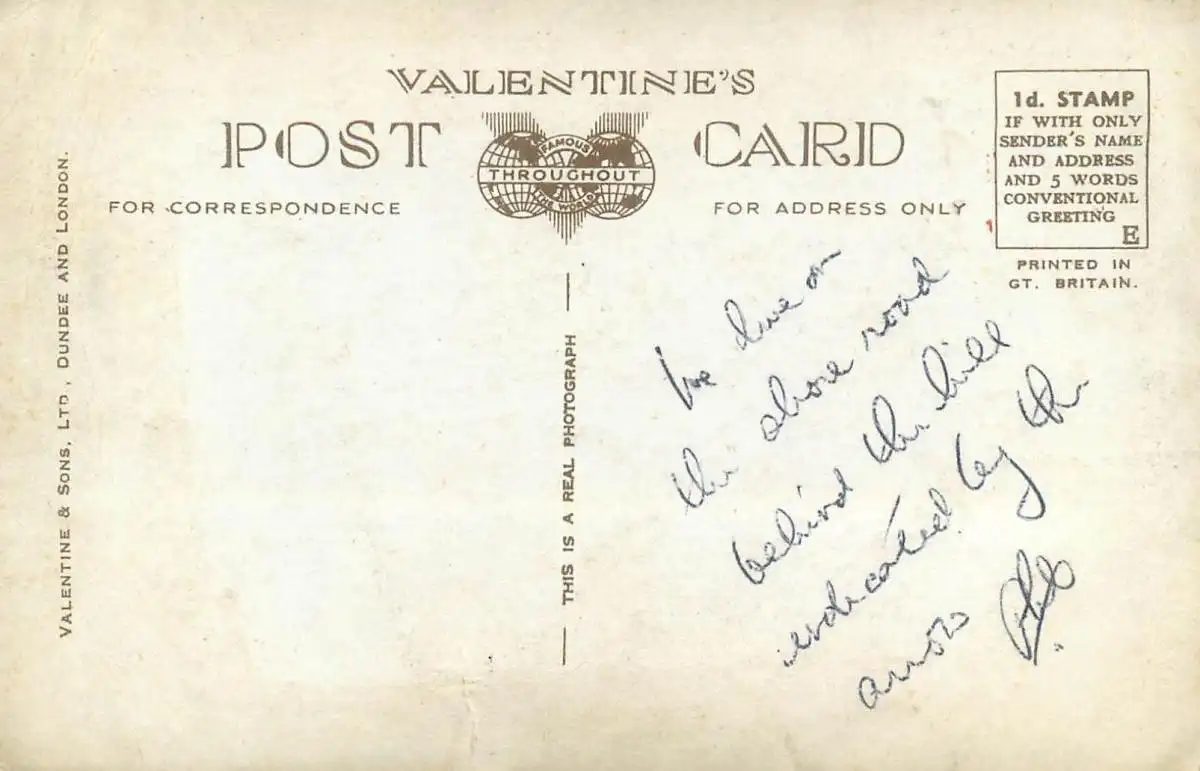 VALENTINE'S
POST CARD
FAMOUS
THROUGHOUT
THE WORLD
FOR CORRESPONDENCE
FOR ADDRESS ONLY
1d. STAMP
IF WITH ONLY
SENDER'S NAME
AND ADDRESS
AND 5 WORDS
CONVENTIONAL
GREETING
E
PRINTED IN
GT. BRITAIN.
VALENTINE & SONS, LTD, DUNDEE AND LONDON.
THIS IS A REAL PHOTOGRAPH
We live on
the shore road
behind the hill
indicated by the
arrow